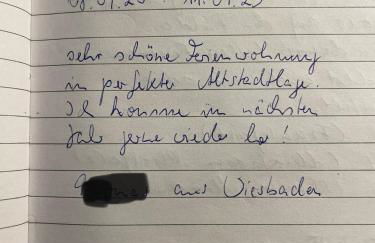 sehr schöne Ferienwohnung
in perfekter Altstadtlage.
Ich komme im nächsten
Jahr gerne wieder her!
aus Wiesbaden